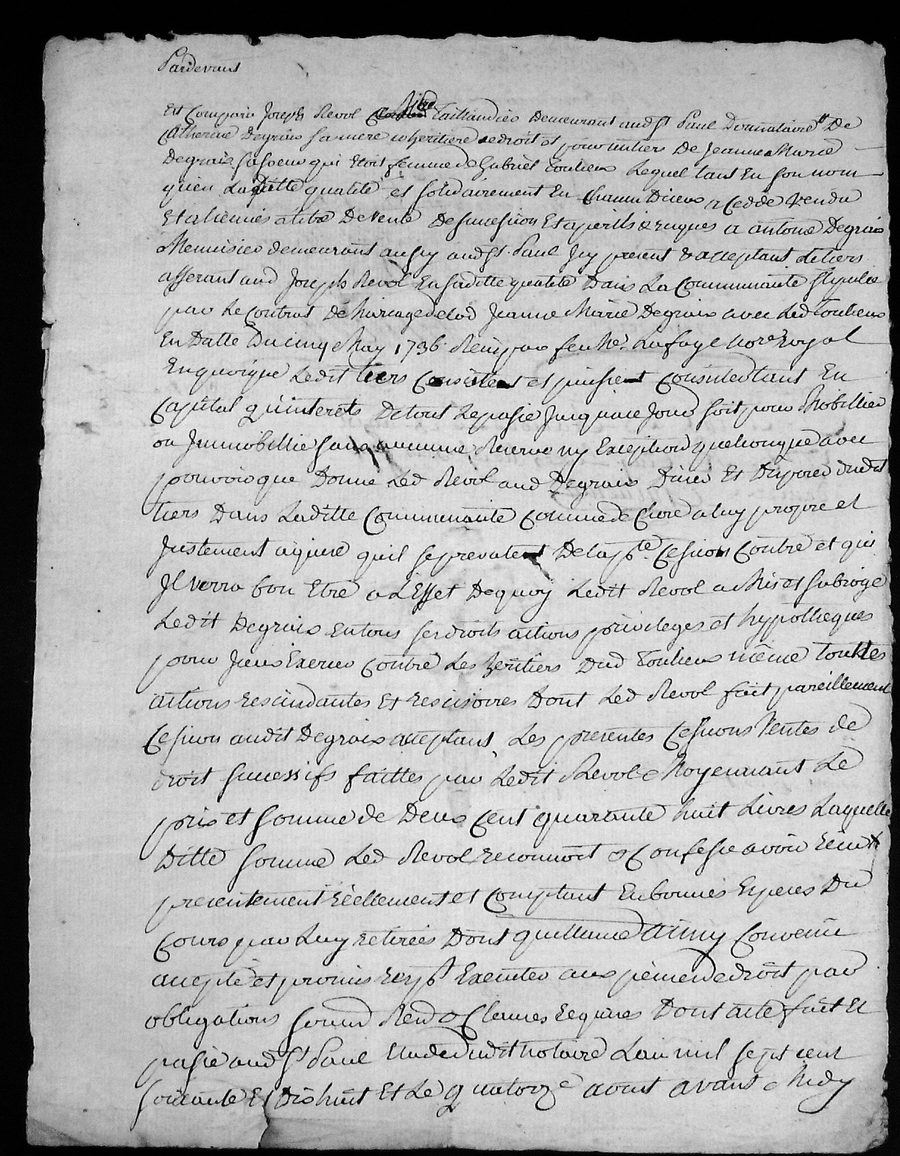 Pardevant
Est Comparu Joseph Revol Taillandier Demeurant aud St Paul Donnataire De
Catherine Degraix sa mere coheritiere de droit et pour un tiers De Jeanne Marie
Degraix sa soeur qui etoit femme de Gabriel Toulieux Lequel tant En son nom
qu'en Laditte qualité et solidairement En Chacun D'iceux a Cedde Vendu
Et a titre De vente De succession Et a perils risques a antoine Degraix
Menuisier demeurant aussy aud St Paul Icy present & acceptant Le tiers
afferant aud Joseph Revol En saditte qualité Dans La Communauté stipulée
par Le Contrat De Mariage de lad Jeanne Marie Degraix avec Led Toulieux
En Datte Du cinq May 1736 Reçu par feu Me Lafaye Nore Royal
En quoy que Ledit tiers Consiste et puisse Consister tant En
Capital qu'interets De tout Le passé Jusqu'a ce Jour soit pour Mobillier
ou Immobillier sans aucunne Reserve ny Exception quelconque avec
pouvoir que Donne Led Revol aud Degraix D'user Et Disposer dudit
tiers Dans Laditte Communauté Comme de Chose a luy propre et
Justement aquise qu'il se prevalent De la pte Cession Contre et qui
Il verra bon Etre a L'Effet De quoy Ledit Revol a Mis et subrogé
Ledit Degraix En tous ses droits actions privileges et hypotheques
pour Iceux Exercer Contre Les heritiers Dud Toulieux même touttes
actions rescindantes Et rescisoires Dont Led Revol fait pareillement
Cession audit Degraix acceptant Les presentes Cessions Ventes de
droit successifs faittes par Ledit Revol Moyennant Le
prix et somme de Deux Cent quarante huit Livres Laquelle
Ditte somme Led Revol reconnoit & Confesse avoir reçu
presentement réellement et Comptant En bonnes Especes Du
Cours par Luy retirées Dont quittance ainsy Convenu
accepté et promis resp.t Executer aux peines de droit par
obligations soum. Renon & Clauses requises Dont acte fait Et
passé aud St Paul Etude dudit notaire L'an mil sept cent
soixante Et Dix huit Et Le Quatorze aoust avant Midy